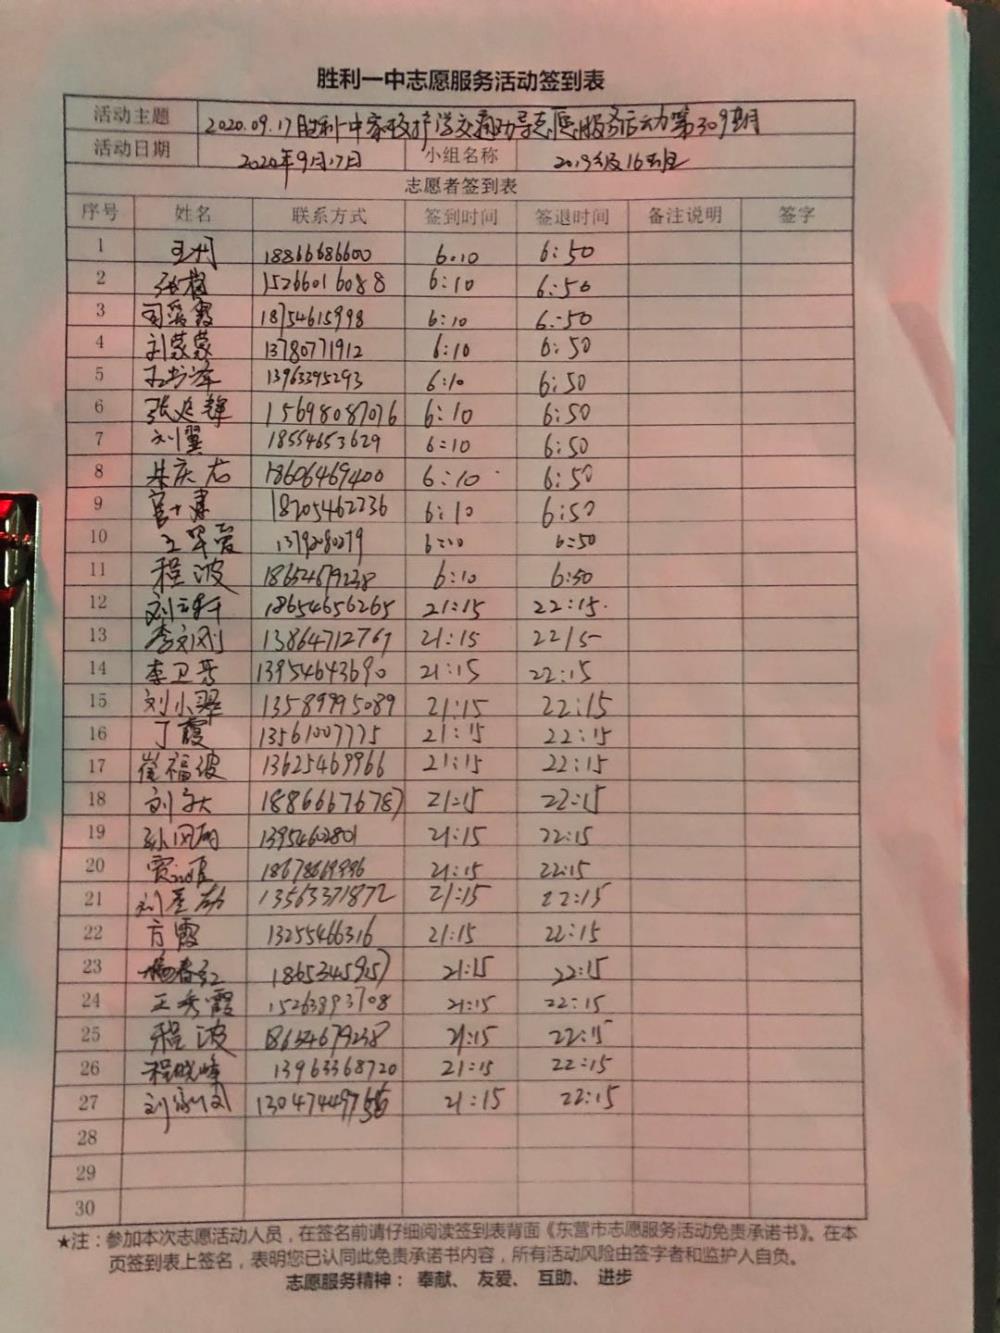 胜利一中志愿服务活动签到表
活动主题 2020.09.17胜利一中家校护学交通劝导志愿服务活动第309期
活动日期 2020年9月17日 小组名称 2019级16班
志愿者签到表
序号 姓名 联系方式 签到时间 签退时间 备注说明 签字
1 王丹 18866686600 6:10 6:50
2 15266016088 6:10 6:50
3 18754615998 6:10 6:50
4 刘蒙蒙 13780771912 6:10 6:50
5 13963395293 6:10 6:50
6 张延锋 15698087076 6:10 6:50
7 刘翼 18554653629 6:10 6:50
8 18606469400 6:10 6:50
9 18205462236 6:10 6:50
10 6:10 6:50
11 程波 18654679238 6:10 6:50
12 18654656265 21:15 22:15
13 李文刚 13864712767 21:15 22:15
14 李卫芳 13954643690 21:15 22:15
15 刘小翠 13589995089 21:15 22:15
16 丁霞 13561007775 21:15 22:15
17 崔福波 13625469966 21:15 22:15
18 18866676787 21:15 22:15
19 21:15 22:15
20 18678669996 21:15 22:15
21 13563371872 21:15 22:15
22 方霞 13255466316 21:15 22:15
23 杨春红 18653459157 21:15 22:15
24 王秀霞 15263893708 21:15 22:15
25 程波 18654679238 21:15 22:15
26 程晓峰 13963368720 21:15 22:15
27 21:15 22:15
28
29
30
★注：参加本次志愿活动人员，在签名前请仔细阅读签到表背面《东营市志愿服务活动免责承诺书》。在本
页签到表上签名，表明您已认同此免责承诺书内容，所有活动风险由签字者和监护人自负。
志愿服务精神： 奉献、 友爱、 互助、 进步